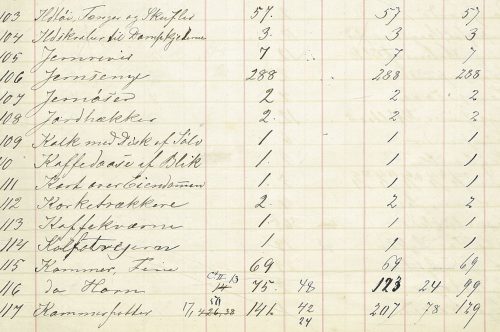 103 Ildtöi, Tænger og Skuffer 57. 57 57
104 Ildskrabere til Dampkjelerne 3. 3 3
105 Jernrivis 7 7 7
106 Jernseng 288 288 288
107 Jernöser 2 2 2
108 Jordhakker 2. 2 2
109 Kalk med Disk af Sölv 1 1 1
10 Kaffedaase af Blik 1. 1 1
111 Kart over Eiendommen 1. 1 1
112 Korketrækkere 2. 2 2
113 Kaffekværn 1 1 1
114 1 1 1
115 Kammer, Fine 69 69 69
116 do Horn 14 75 48 123 24 99
117 Kammerpotter 141 42 24 207 78 129